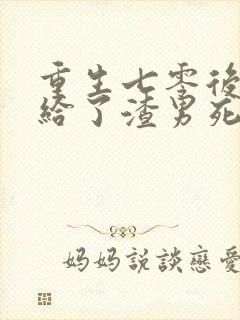 重生七零後
給了渣男死
媽媽說談戀愛